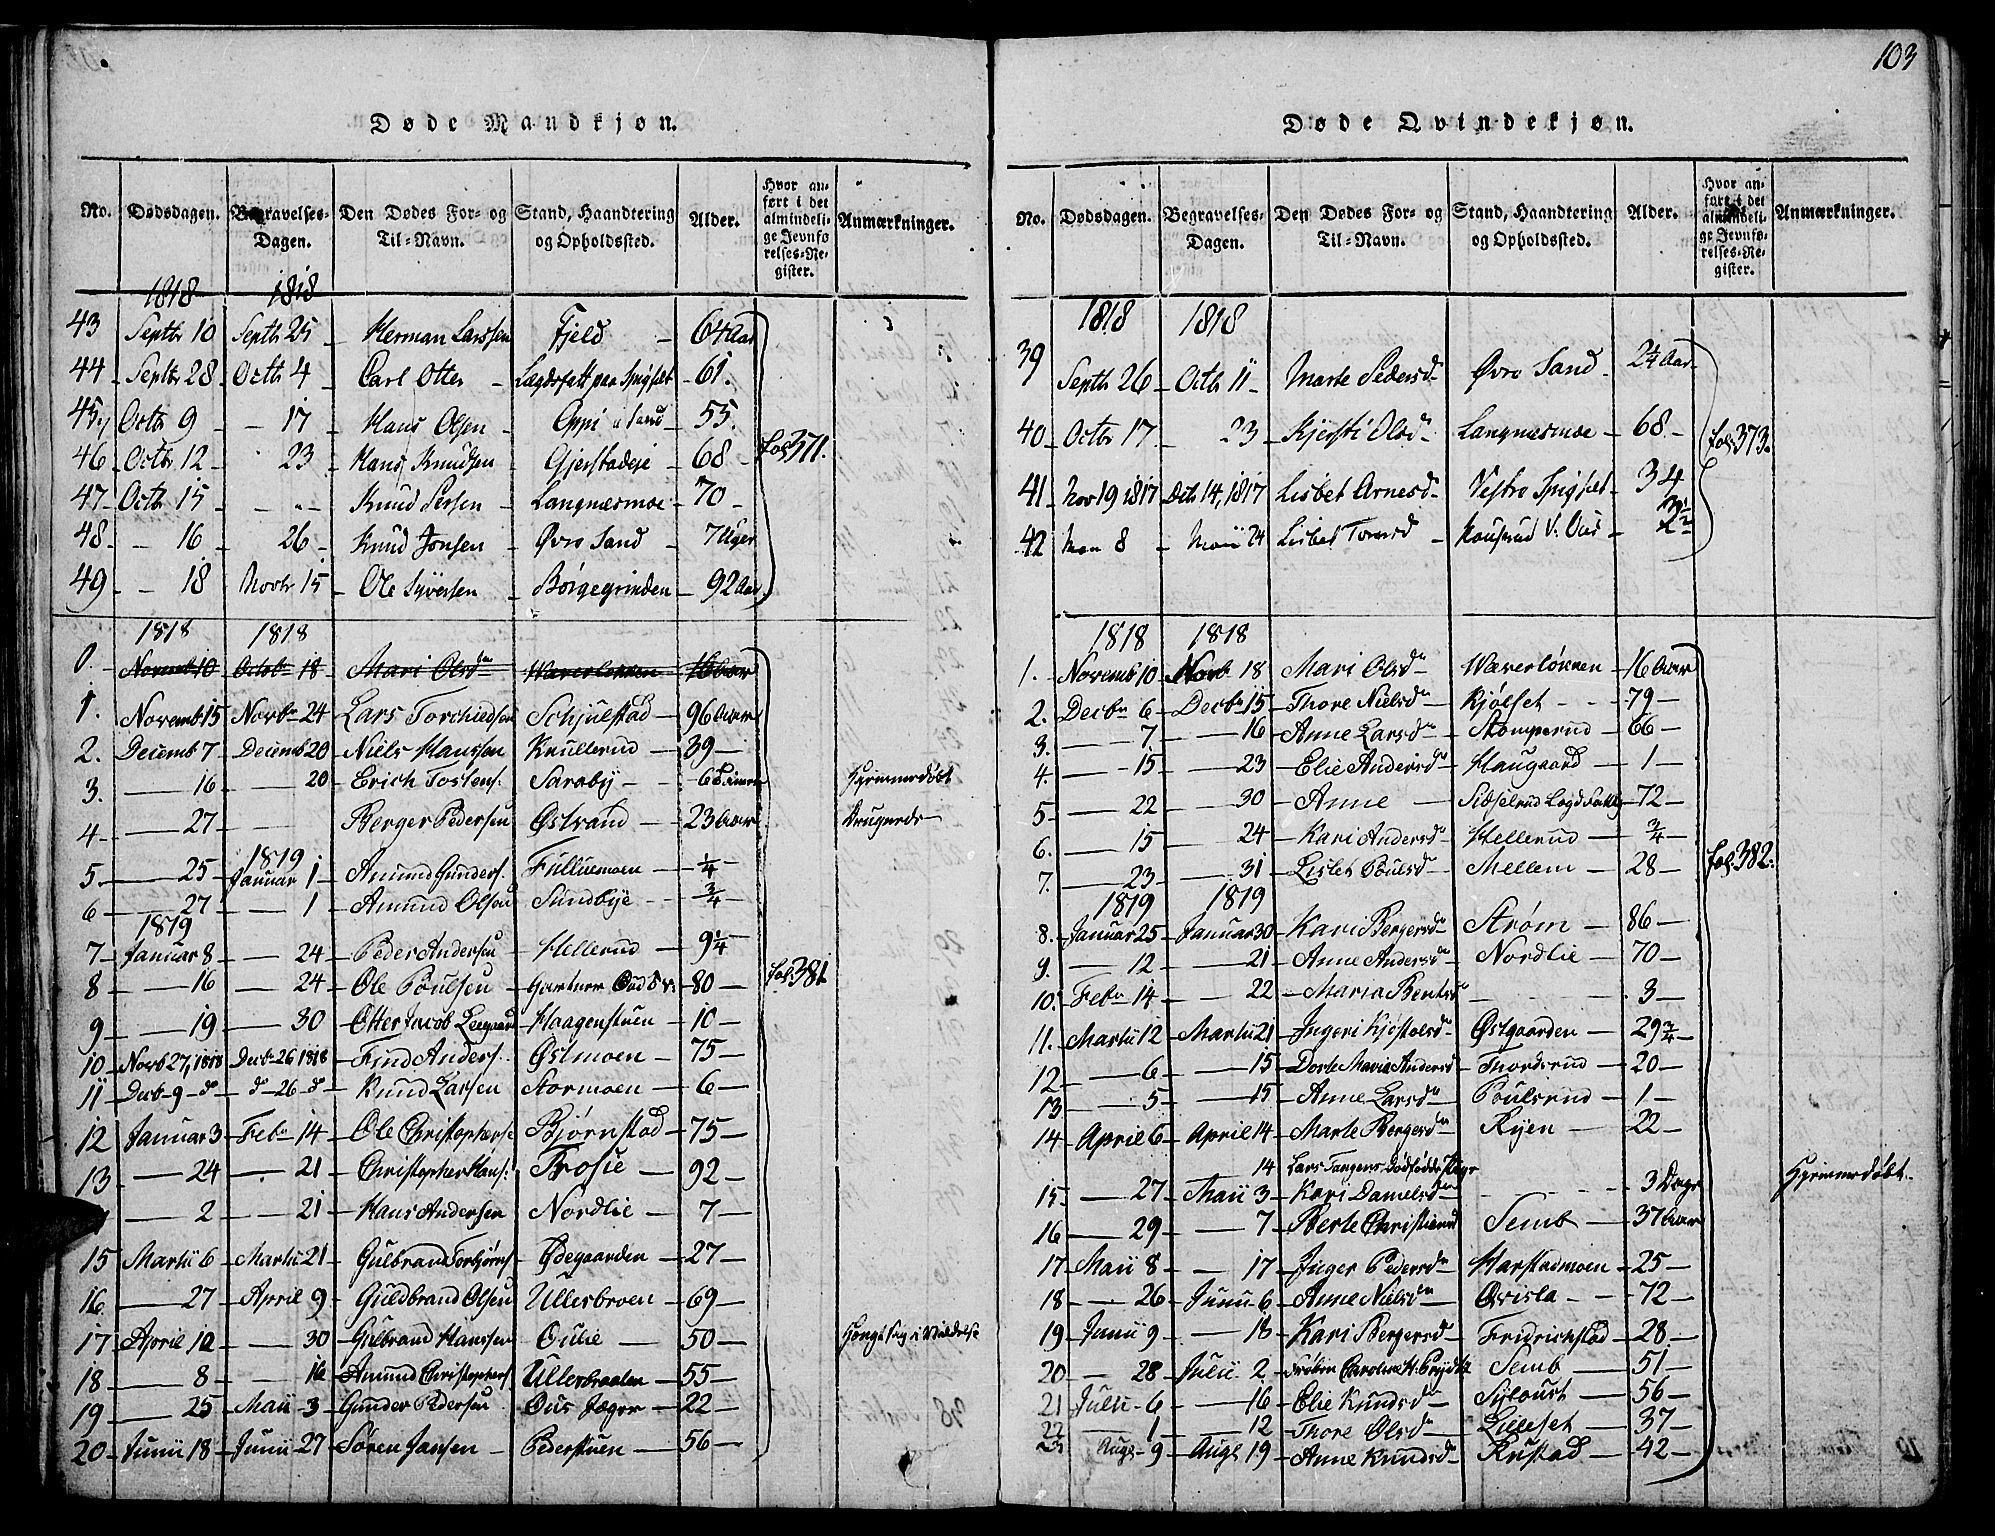 103
Døde Mandkjøn.
No. Dødsdagen. Begravelses-Dagen. Den Dødes For- og Til-Navn. Stand, Haandtering og Opholdssted. Alder. Hvor anført i det almindelige Jevnførelses-Register. Anmærkninger.
1818 1818
43 Septbr 10 Septbr 25 Herman Larssen Fjeld 64 Aar
44 Septbr 28 Octbr 4 Carl Otter Lægdsfatt paa Spigset 61.
45 Octbr 9 17 Hans Olsen Oppi Sand 55.
46 Octbr 12 23 Hans Knudsen Gjerstadeje 68
fol 371.
47 Octbr 15 Knud Persen Langnæsmoe 70
48 16 26 Knud Jonsen Øvre Sand 7 Uger
49 18 Novbr 15 Ole Syversen Børgegrinden 92 Aar
1818 1818
0. Novemb 10 Octob 18 Mari Olsdn Wæverløkken 16 Aar
1. Novemb 15 Novbr 24 Lars Torchildsen Schjulstad 96 Aar
2. Decemb 7 Decemb 20 Niels Hanssen Knullerud 39
3. 16 20 Erich Tostens: Saraby 6 Timer Hjemmedøbt
4 27 Berger Pedersen Østsand 23 Aar
1819
5. 25 Januar 1 Amund Gunders. Fullumoen ¼
6 27 1 Amund Olsen Sundbye ¾
1819
7 Januar 8 24 Peder Andersen Hellerud 9¼
8 16 24 Ole Poulsen Gartner 80 fol 381
9 19 30 Otter Jacob Haagenstuen 10
10 Novb 27, 1818 Decb 26 1818 Find Anders. Østmoen 75
11 Decb 9 d d 26 d Knud Larsen Stormoen 6
12 Januar 3 Feb 14 Ole Christophersen Bjørnstad 75
13 24 21 Christopher Hans: Brosie 92
2 21 Hans Andersen Nordlie 7
15 Martii 6 Martii 21 Gulbrand Torbjørns Ødegaarden 27
16 27 April 9 Guldbrand Olsen Ullersbroen 69
17 April 10 30 Gulbrand Hanssen Oulie 50 Hængt sig i Vildelse
18 8 16 Amund Christophers Ullersbraaten 55
19 25 Maii 3 Gunder Pedersen Ous Jæger 22
20 Junii 18 Junii 27 Søren Jansen Pederstuen 56
Døde Qvindekjøn.
No. Dødsdagen. Begravelses-Dagen. Den Dødes For- og Til-Navn. Stand, Haandtering og Opholdssted. Alder. Hvor anført i det almindelige Jevnførelses-Register. Anmærkninger.
1818 1818
39 Septbr 26 Octbr 11 Marte Pedersd Øvre Sand 2¼ Aar
40 Octbr 17 23 Kjersti Olsd Langnæsmoe 68
fol 373.
41 Nov 19 1817 Dcb 14, 1817 Lisbet Arnesd Vestre Spigset 34
42 8 Maii 24 Lisbet Tomesd 2½
1818 1818
1. Novemb 10 Novb 18 Mari Olsd Wæverløkken 16 Aar
2. Decbr 6 Decbr 15 Thore Nielsd Kjølset 79
3. 7 16 Anne Larsd Stomperud 66
4. 15 23 Elie Andersd Haugaard 1
5 22 30 Anne 72
6. 15 24 Kari Andersd Hellerud ¾
7. 23 31 Lisbet Poulsd Mellem 28
fol 382.
1819 1819
8. Januar 25 Januar 30 Kari Bergersd Strøm 86
9. 12 21 Anne Andersd Nordlie 70
10. Feb 14 22 Maria Bentsd 3
11. Martii 12 Martii 21 Ingeri Kjøstolsd Østgaarden 29¾
12 6 15 Dorte Maria Andersd Thordsrud 20
13 5 15 Anne Larsd Poulsrud 1
14 April 6 April 14 Marte Bergersd Ryen 22
14 Lars Tangens Dødfødde
15. 27 Maii 3 Kari Danielsdn 3 Dage Hjemmedøbt
16 29 7 Berte Christiansd Semb 37 Aar
17 Maii 8 17 Inger Pedersd Harstadmoen 25
18 26 Junii 6 Anne Nielsd Ovisla 72
19 Junii 9 18 Kari Bergersd Fridrichstad 28
20 28 Julii 2 Frøken Caroline Prydtz Semb 51
21 Julii 6 16 Elie Knudsd Syloust 56
22 1 12 Thore Olsd Lilleset 37
23 Augs 9 Augs 19 Anne Knudsd Rustad 42